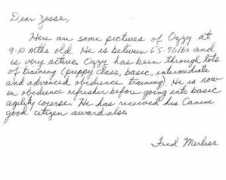 Dear Jesse,
Here are some pictures of Ozzy at
9-10 mths old. He is between 65-70lbs and
is very active. Ozzy has been through lots
of training (puppy class, basic, intermediate
and advanced obedience training). He is now
in obedience refresher before going into basic
agility course. He has received his Canine
good citizen award also.
Fred